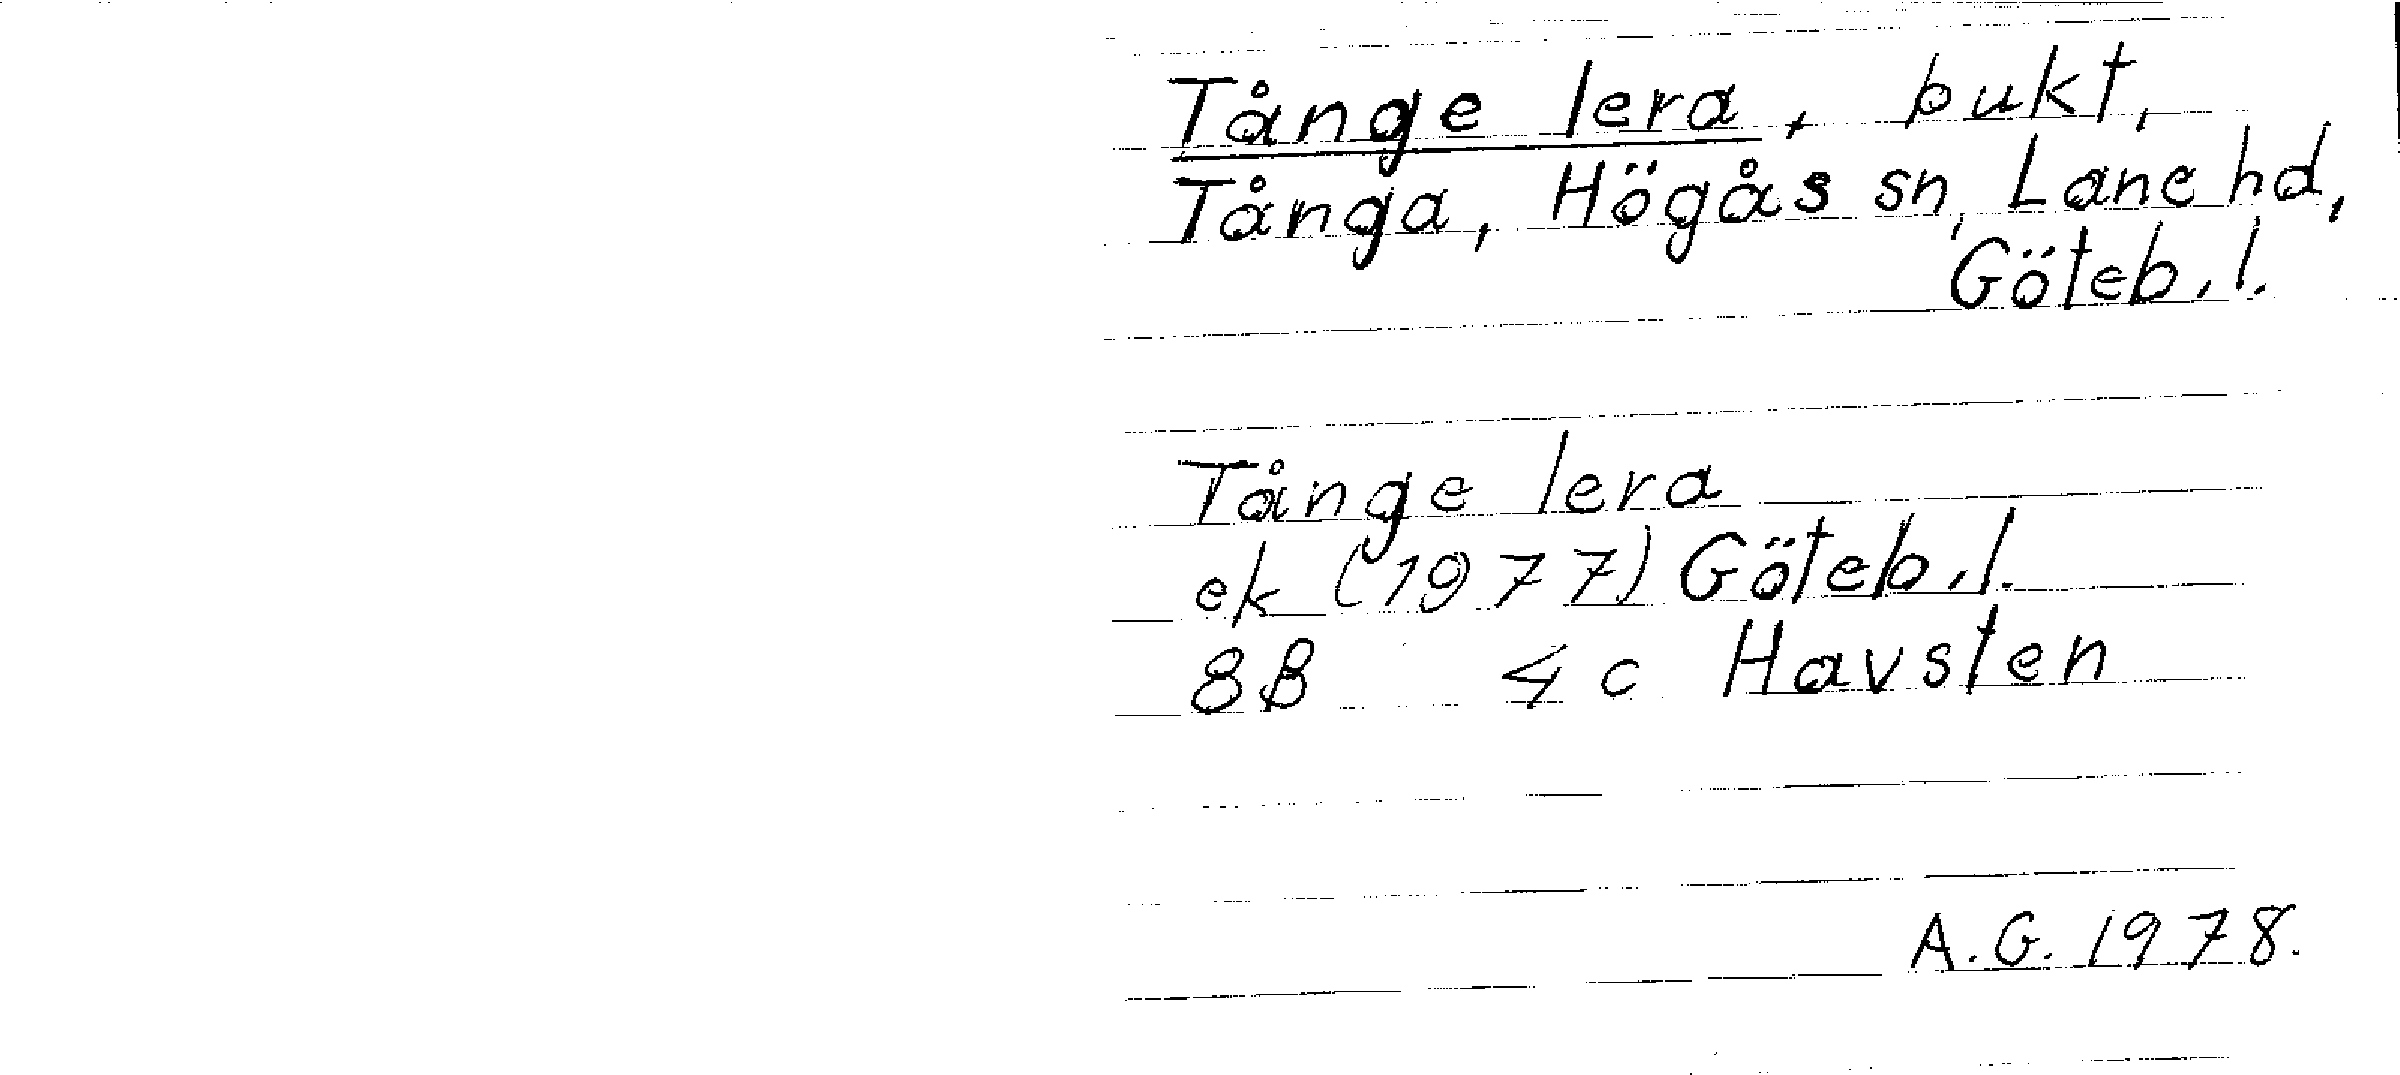 Tånge lera, bukt,
Tånga, Högås sn, Lane hd,
Göteb. l.
Tånge lera
ek (1977) Göteb. l.
8B 4c Havsten
A.G. 1978.